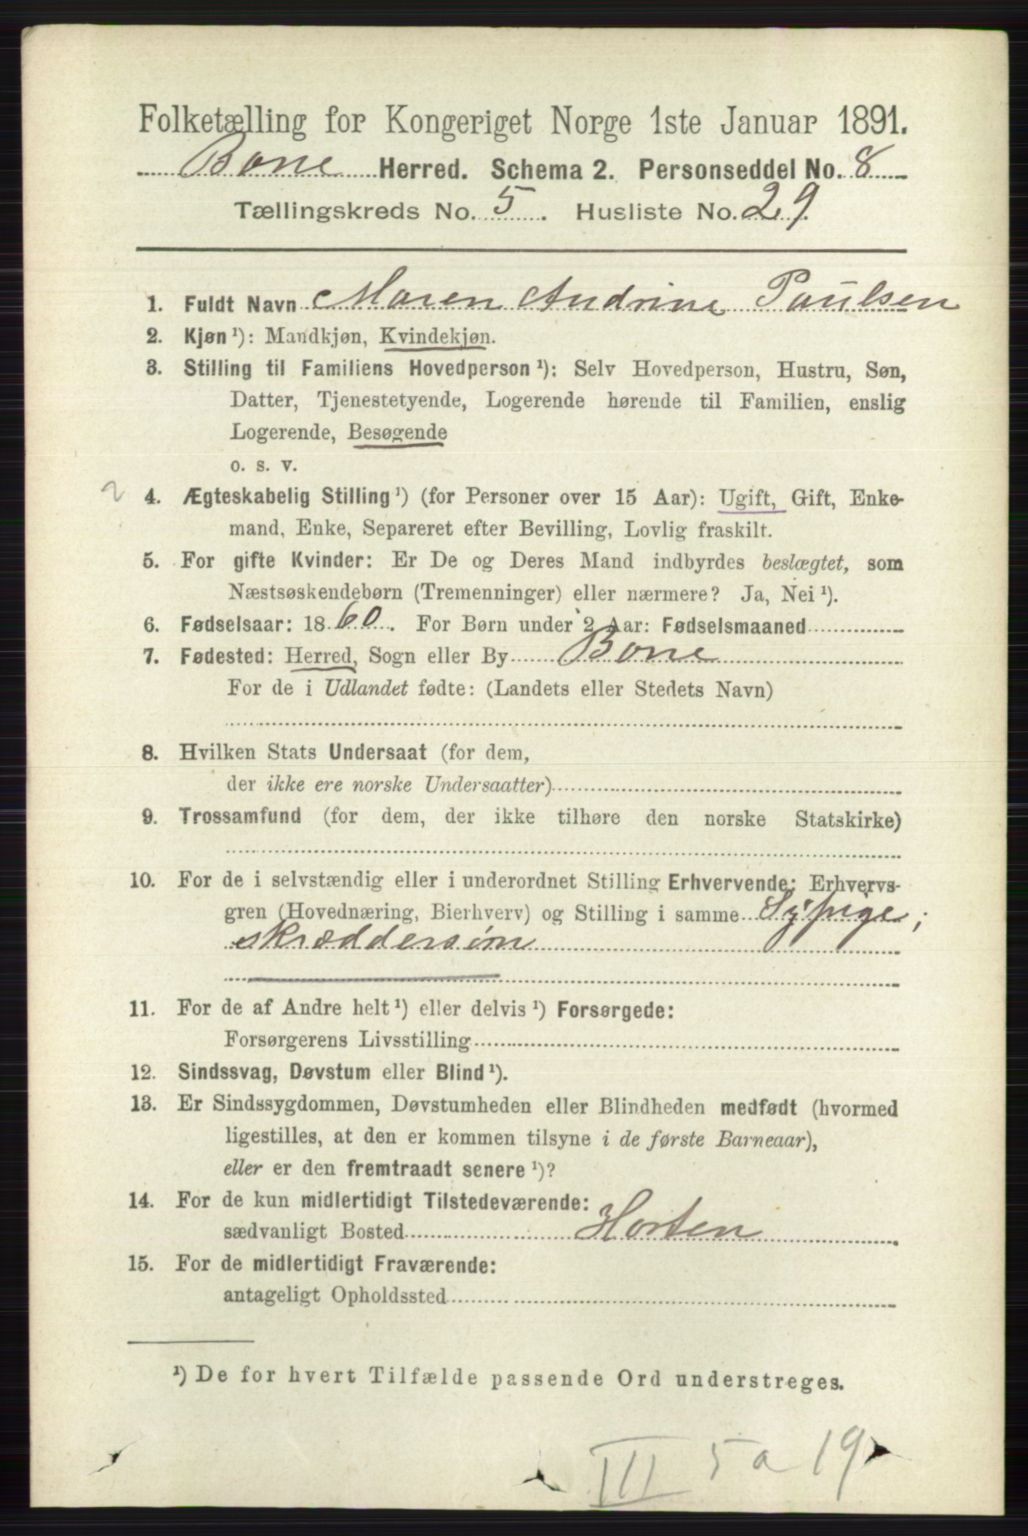 Folketælling for Kongeriget Norge 1ste Januar 1891.
Borre Herred. Schema 2. Personseddel No. 8
Tællingskreds No. 5. Husliste No. 29.
1. Fuldt Navn Maren Andrine Paulsen
2. Kjøn ¹): Mandkjøn, Kvindekjøn.
3. Stilling til Familiens Hovedperson ¹): Selv Hovedperson, Hustru, Søn,
Datter, Tjenestetyende, Logerende hørende til Familien, enslig
Logerende, Besøgende
o. s. v.
2
4. Ægteskabelig Stilling ¹) (for Personer over 15 Aar): Ugift, Gift, Enke-
mand, Enke, Separeret efter Bevilling, Lovlig fraskilt.
5. For gifte Kvinder: Er De og Deres Mand indbyrdes beslægtet, som
Næstsøskendebørn (Tremenninger) eller nærmere? Ja, Nei ¹).
6. Fødselsaar: 1860. For Børn under 2 Aar: Fødselsmaaned
7. Fødested: Herred, Sogn eller By Borre
For de i Udlandet fødte: (Landets eller Stedets Navn)
8. Hvilken Stats Undersaat (for dem,
der ikke ere norske Undersaatter)
9. Trossamfund (for dem, der ikke tilhøre den norske Statskirke)
10. For de i selvstændig eller i underordnet Stilling Erhvervende: Erhvervs-
gren (Hovednæring, Bierhverv) og Stilling i samme Sypige;
skræddersøm
11. For de af Andre helt ¹) eller delvis ¹) Forsørgede:
Forsørgerens Livsstilling
12. Sindssvag, Døvstum eller Blind ¹).
13. Er Sindssygdommen, Døvstumheden eller Blindheden medfødt (hvormed
ligestilles, at den er kommen tilsyne i de første Barneaar),
eller er den fremtraadt senere ¹)?
14. For de kun midlertidigt Tilstedeværende:
sædvanligt Bosted Horten
15. For de midlertidigt Fraværende:
antageligt Opholdssted
¹) De for hvert Tilfælde passende Ord understreges.
III 5a 19